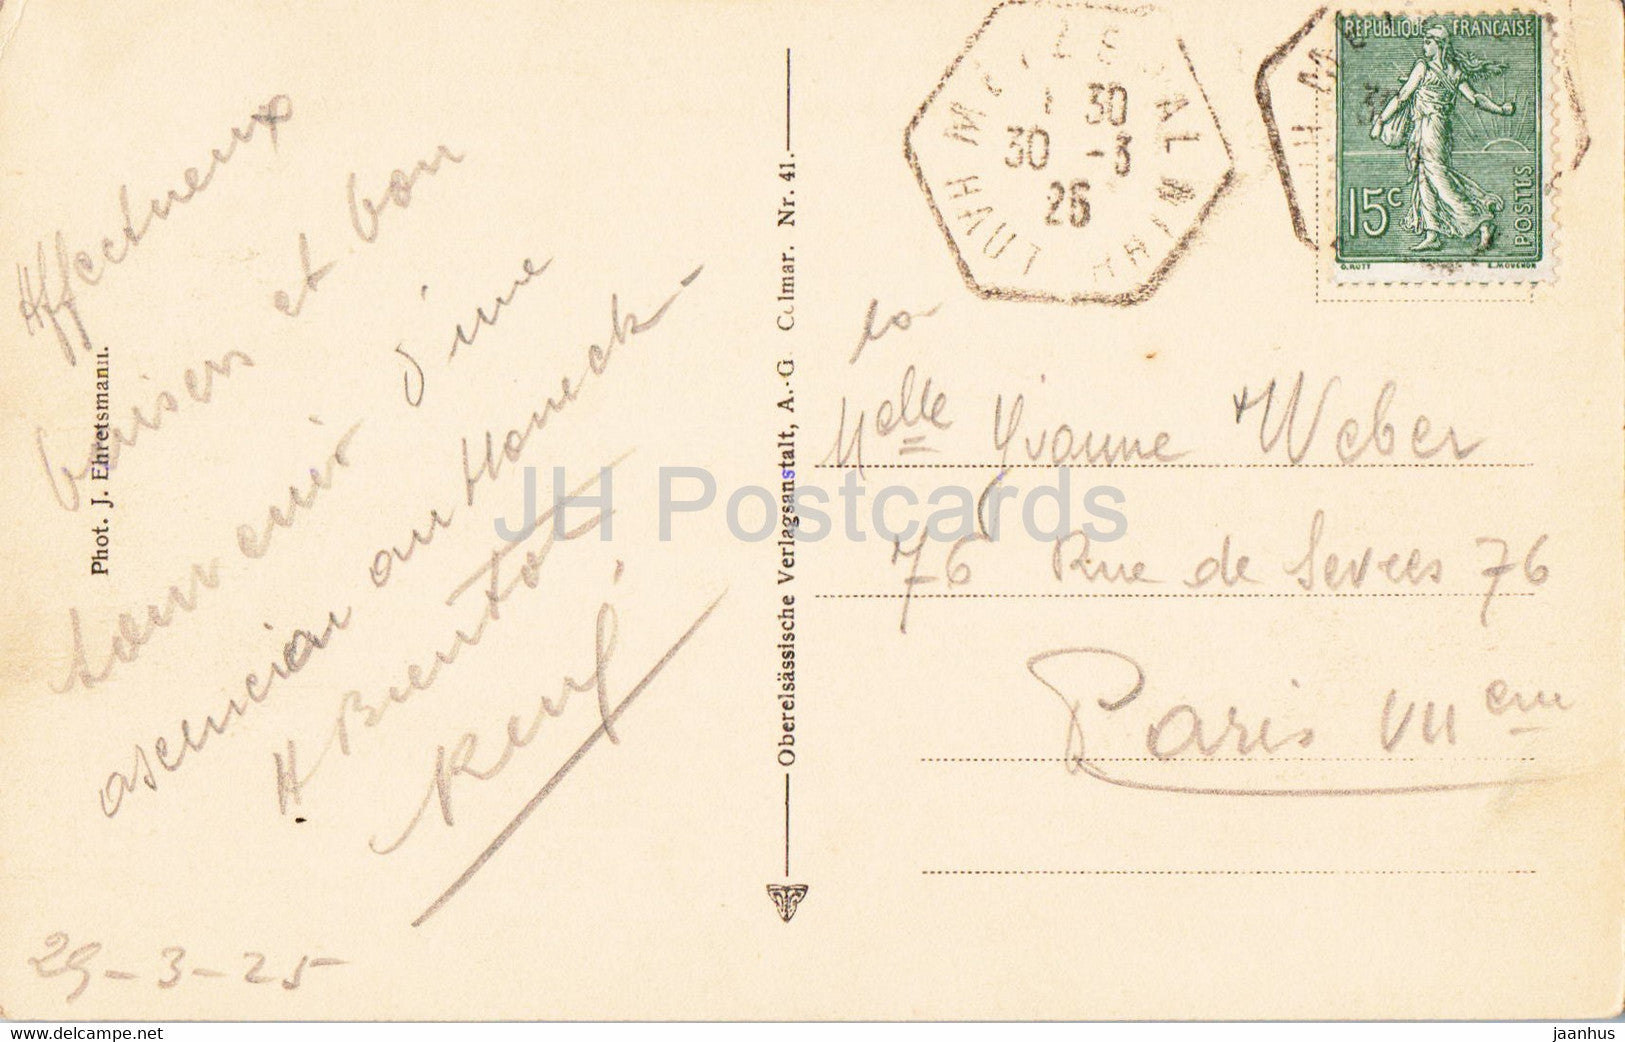 Affectueux
baisers et bon
souvenir d'une
ascencion au Honeck -
A Bientot
René
29-3-25
Phot. J. Ehretsmann.
Oberelsässische Verlagsanstalt, A.-G Colmar. Nr. 41.
30
30 -3
26
REPUBLIQUE FRANCAISE
15c
POSTES
O. ROTY
E. MOUCHON
Melle Yvonne Weber
76 Rue de Sevres 76
Paris VIIeme
JH Postcards
www.delcampe.net
jaanhus